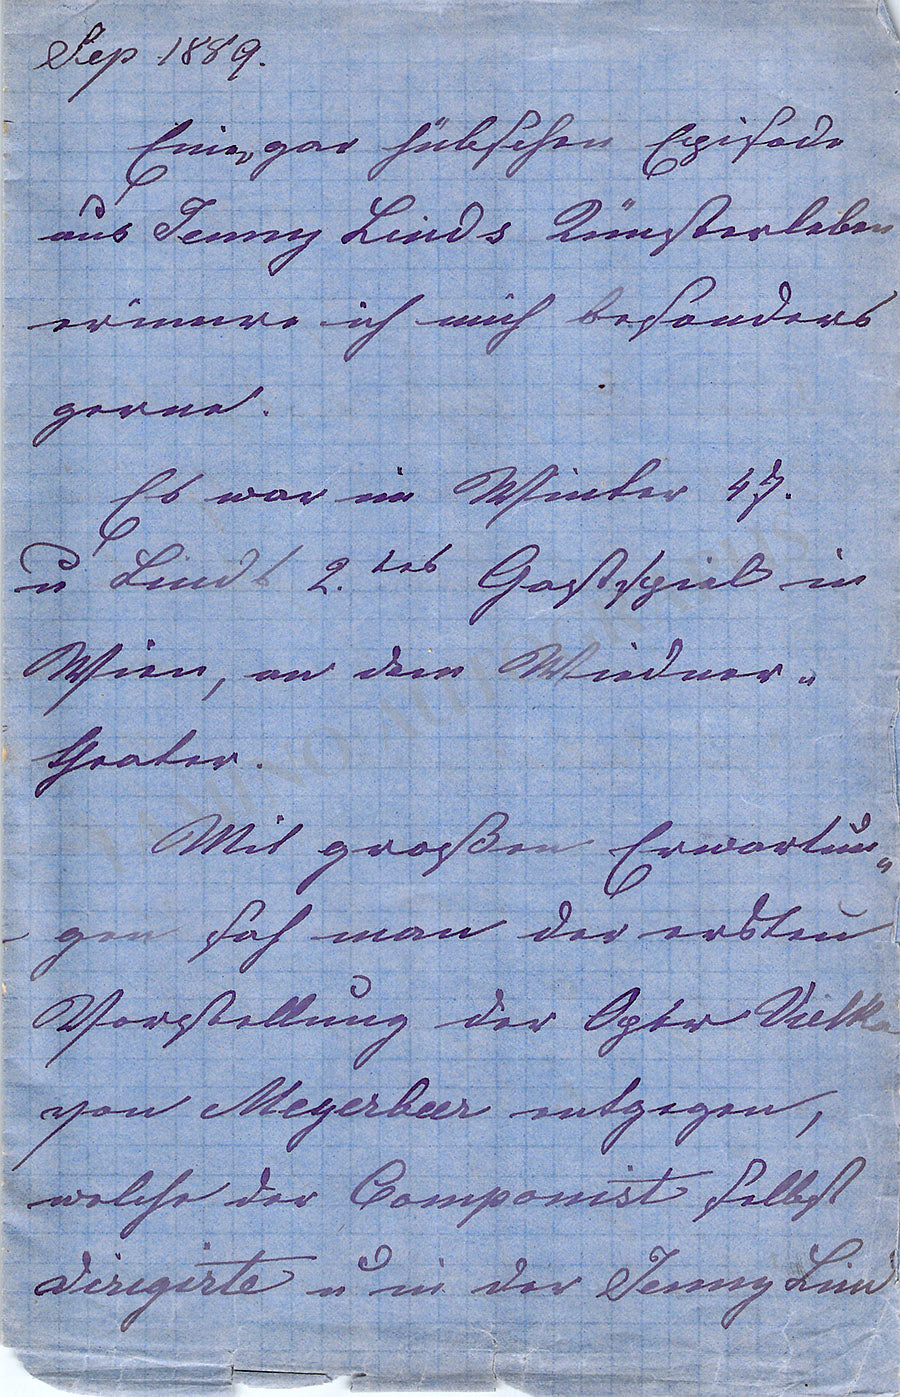 Sep 1889.
Einer gar hübschen Episode
aus Jenny Linds Künstlerleben
erinnere ich mich besonders
gerne.
Es war im Winter 47.
u Linds 2.tes Gastspiel in
Wien, an dem Wiedner„
theater.
Mit großen Erwartun„
gen sah man der ersten
Vorstellung der Oper Vielka
von Meyerbeer entgegen,
welche der Componist selbst
dirigirte u in der Jenny Lind
TAMINO AUTOGRAPHS